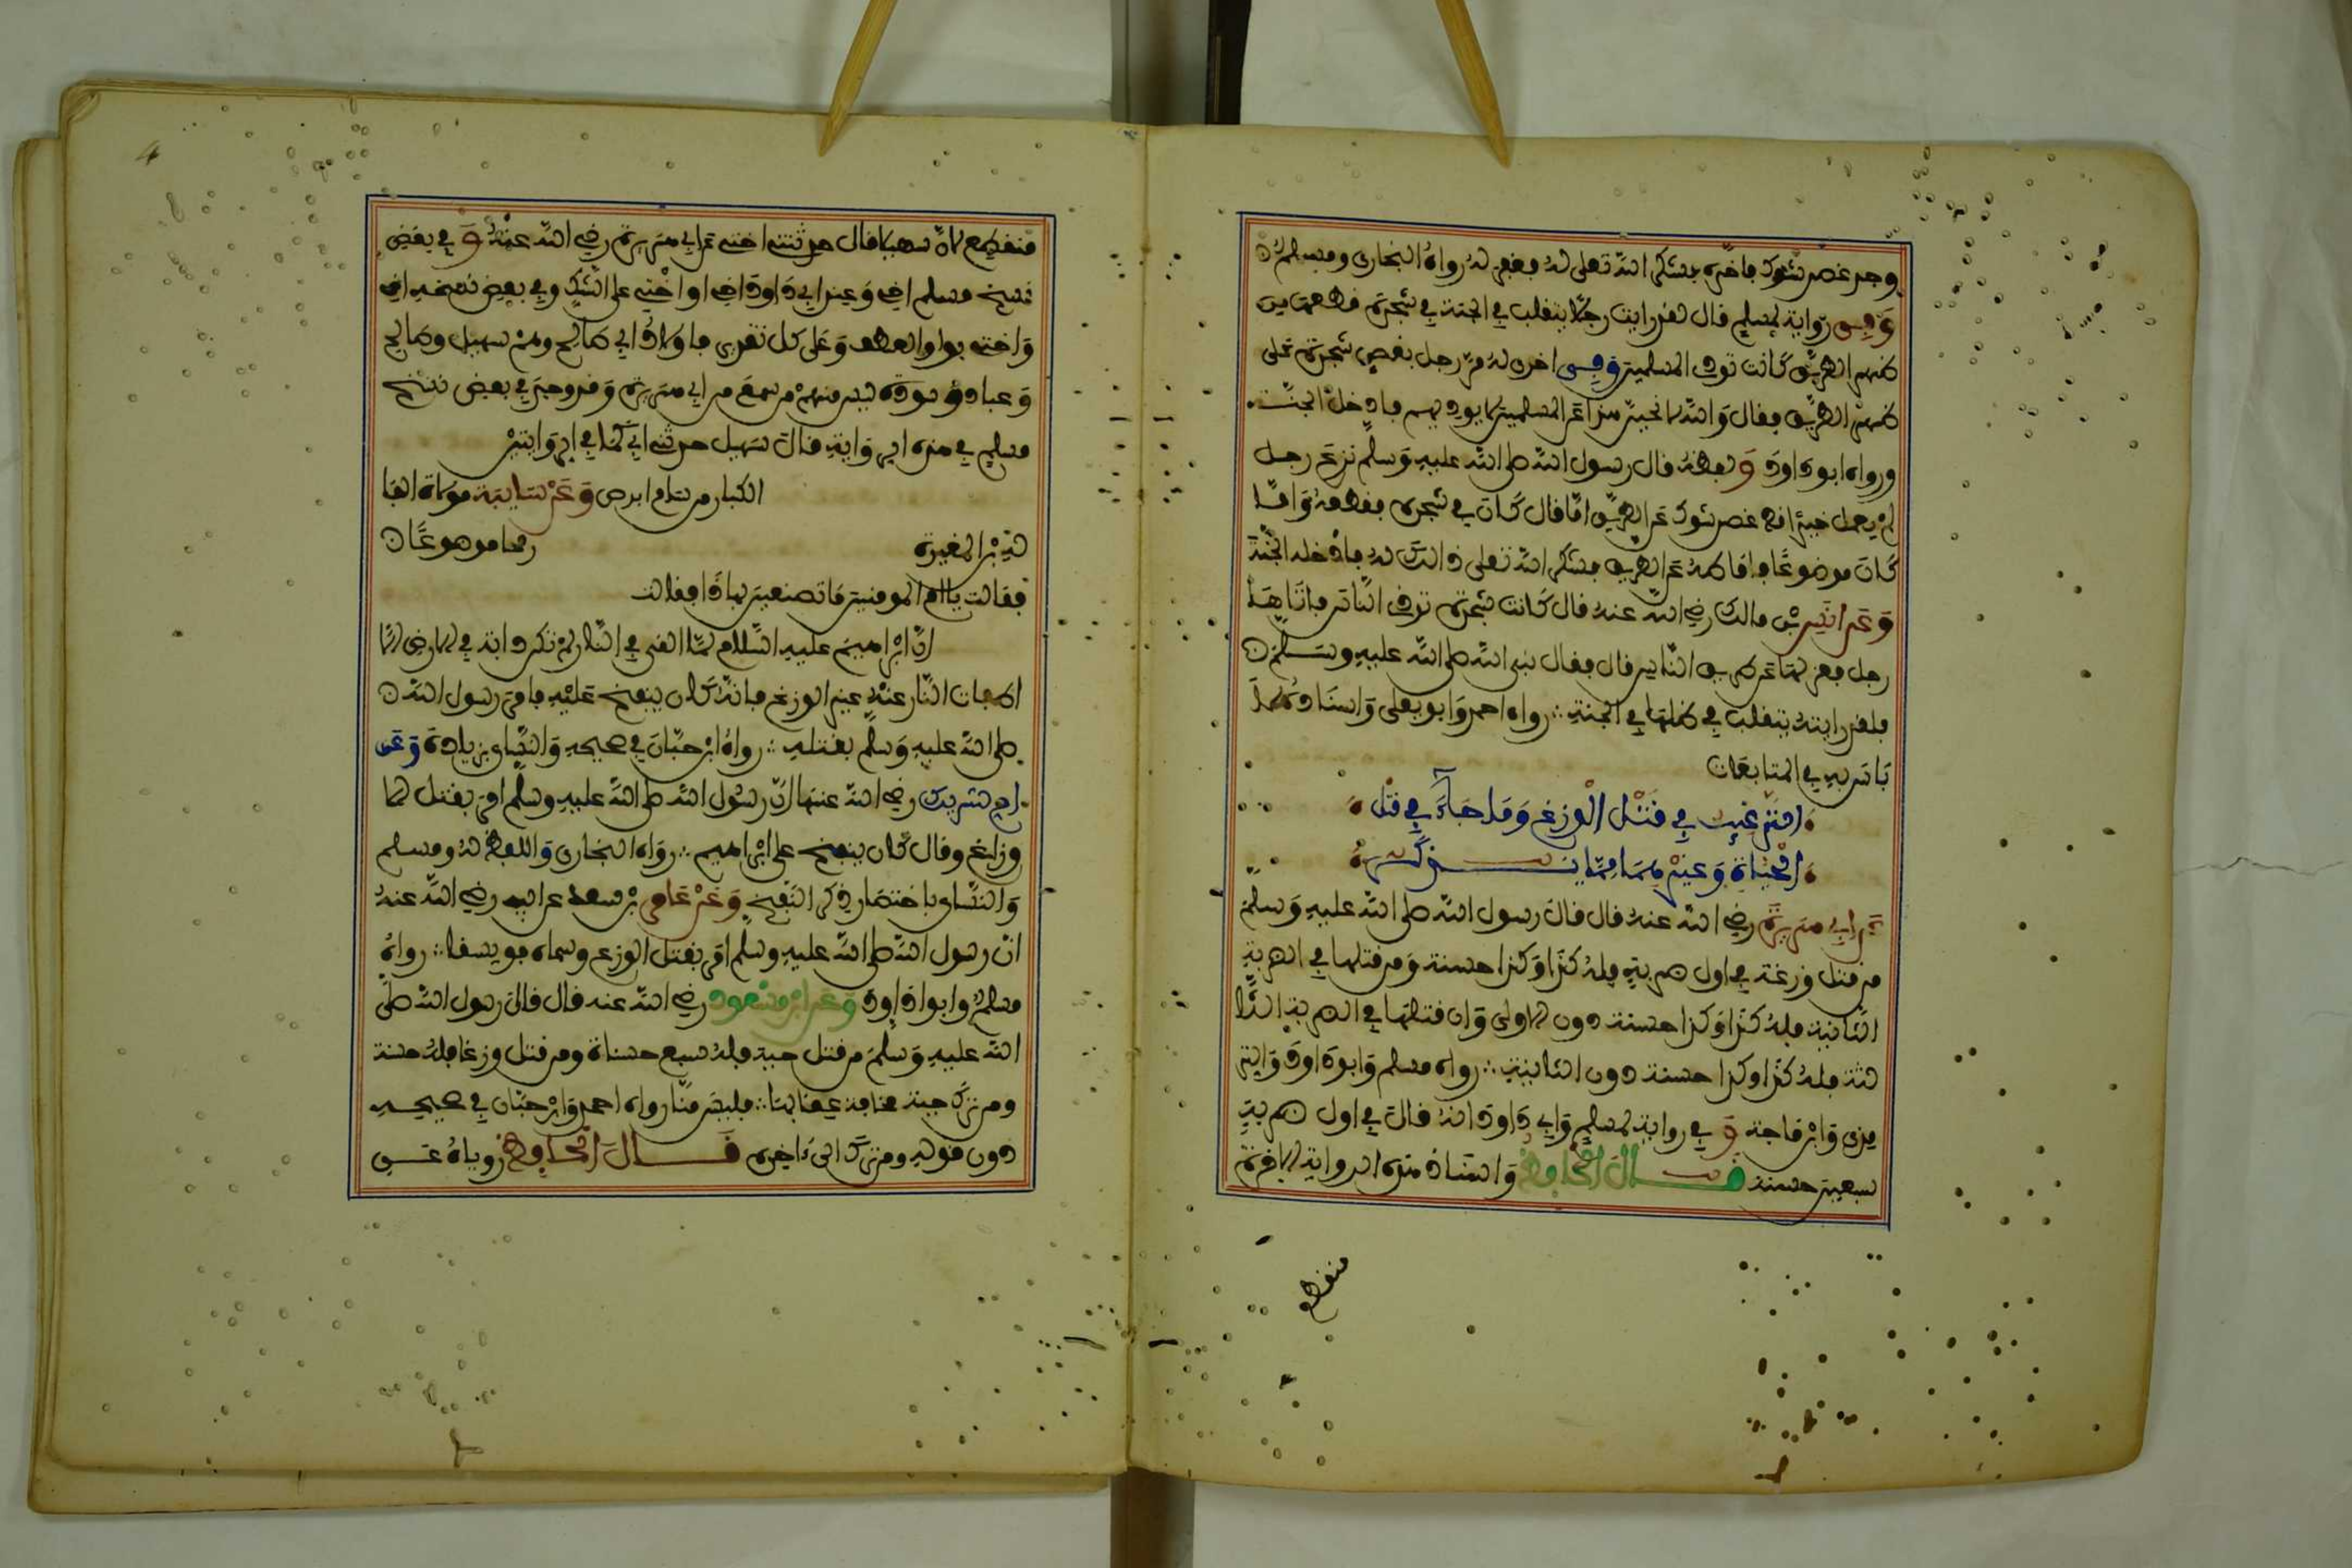 وجد غصن شوك فاخره فشكر الله تعلى له فغفر له رواه البخاري ومسلم
وفي رواية لمسلم قال لقد رايت رجلا يتقلب في الجنة في شجرة قطعها من
ظهر الطريق كانت توذي المسلمين وفي اخرى له مر رجل بغصن شجرة على
ظهر الطريق فقال والله لانحين هذا عن المسلمين لا يوذيهم فادخل الجنة
ورواه ابو داود ولفظه قال رسول الله صلى الله عليه وسلم نزع رجل
لم يعمل خيرا قط غصن شوك عن الطريق اما قال كان في شجرة فقطعه واما
كان موضوعا فاماطه عن الطريق فشكر الله تعلى ذالك له فادخله الجنة
وعن انس بن مالك رضي الله عنه قال كانت شجرة توذي الناس فاتاها
رجل فعزلها عن طريق الناس قال فقال نبي الله صلى الله عليه وسلم
فلقد رايته يتقلب في ظلها في الجنة رواه احمد وابو يعلى واسناده
لا باس به في المتابعات
الترغيب في قتل الوزغ وما جاء في قتل
الحيات وغيرها مما يذكر
عن ابي هريرة رضي الله عنه قال قال رسول الله صلى الله عليه وسلم
من قتل وزغة في اول ضربة فله كذا وكذا حسنة ومن قتلها في الضربة
الثانية فله كذا وكذا حسنة دون الاولى وان قتلها في الضربة الثا
لثة فله كذا وكذا حسنة دون الثانية رواه مسلم وابو داود والتر
مذي وابن ماجة وفي رواية لمسلم وابي داود انه قال في اول ضربة
سبعين حسنة قال الحافظ واسناد هذه الرواية الاخيرة
منقطع
4
منقطع لان سهيلا قال حدثتني اختي عن ابي هريرة رضي الله عنه وفي بعض
نسخ مسلم اخي وعند ابي داود اخي او اختي على الشك وفي بعض نسخه اخي
واختي بواو العطف وعلى كل تقدير فاولاد ابي صالح وهم سهيل وصالح
وعباد وسودة ليس منهم من سمع من ابي هريرة وقد وجد في بعض نسخ
مسلم في هذه الرواية قال سهيل حدثني ابي كما في الروايتين
الكبار من سام ابرص وعن سايبة مولاة الفا
كه بن المغيرة رمحا موضوعا
فقالت يا ام المومنين ما تصنعين بهاذا فقالت
ان ابراهيم عليه السلام لما القي في النار لم تكن دابة في الارض الا
اطفات النار عنه غير الوزغ فانه كان ينفخ عليه فامر رسول الله
صلى الله عليه وسلم بقتله رواه ابن حبان في صحيحه والنساي بزيادة وعن
ام شريك رضي الله عنها ان رسول الله صلى الله عليه وسلم امر بقتل الا
وزاغ وقال كان ينفخ على ابراهيم رواه البخاري واللفظ له ومسلم
والنساي باختصار ذكر النفخ وعن عامر بن سعد عن ابيه رضي الله عنه
ان رسول الله صلى الله عليه وسلم امر بقتل الوزغ وسماه فويسقا رواه
مسلم وابو داود وعن ابن مسعود رضي الله عنه قال قال رسول الله صلى
الله عليه وسلم من قتل حية فله سبع حسنات ومن قتل وزغا فله حسنة
ومن ترك حية مخافة عاقبتها فليس منا رواه احمد وابن حبان في صحيحه
دون قوله ومن ترك الى ءاخره قال الحافظ روياه عن